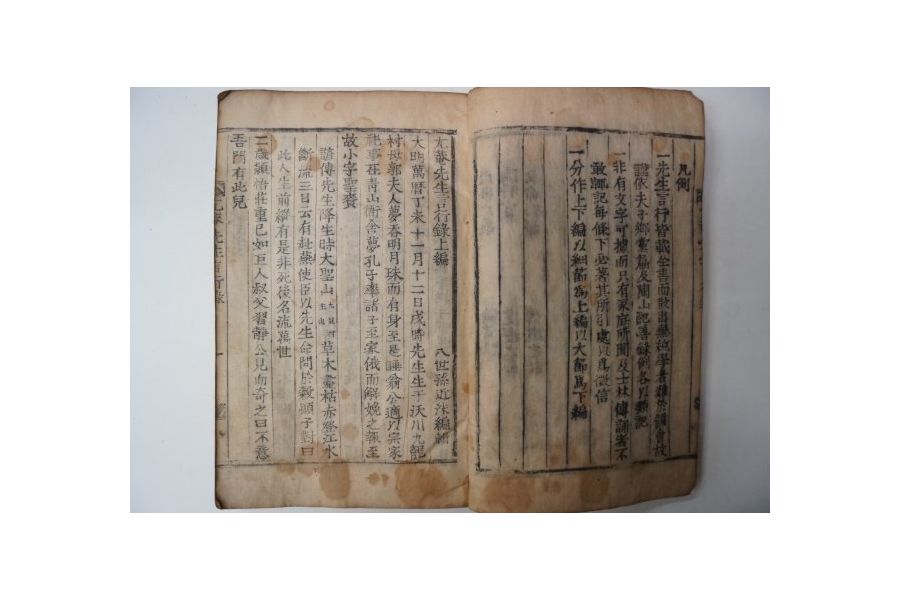 凡例
一先生言行皆載全書而散出學者難於
謹依夫子鄕黨篇及閩山記善錄例各以類記
一非有文字可據而只有家庭所聞及士林傳誦者不
敢輒記每條下必著其所引處以爲徵信
一分作上下編以細節爲上編以大節爲下編
尤菴先生言行錄上編
八世孫近洙編輯
大明萬曆丁未十一月十二日戌時先生生于沃川九龍
村母郭夫人夢呑明月珠而有身至是睡翁公適以宗家
祀事在靑山衙舍夢孔子率諸子至家俄而解娩之報至
故小字聖賚
諺傳先生降生時大聖山草木盡枯赤登江水
斷流三日云有赴燕使臣以先生命問於穀顯子對曰
此人生前縱有是非死後名流萬世
二歲穎悟莊重已如巨人叔父習靜公見而奇之曰不意
吾門有此兒